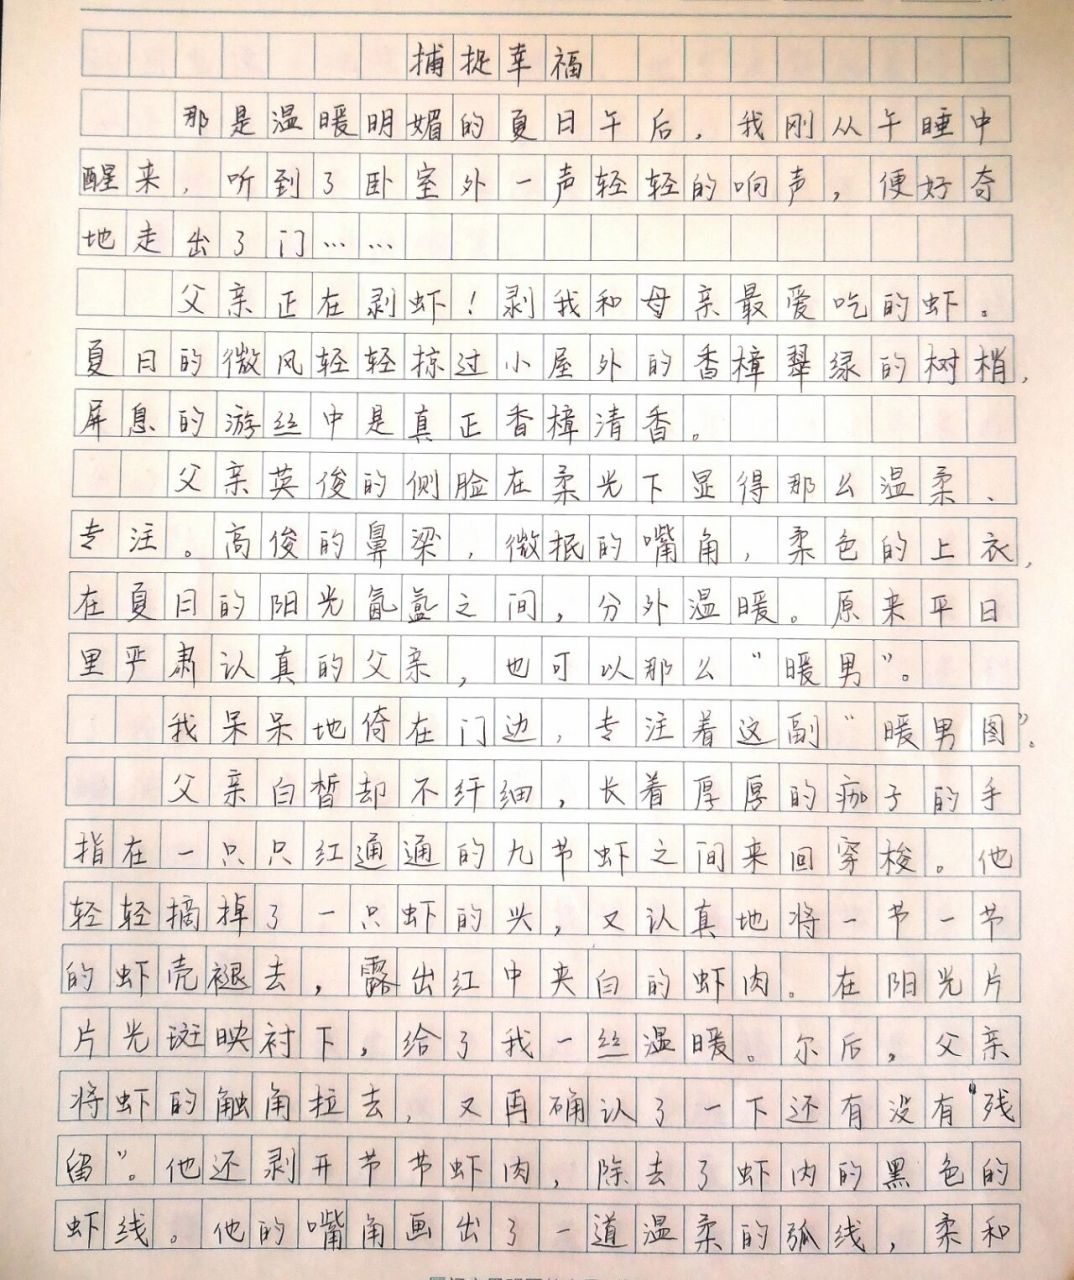 捕捉幸福
那是温暖明媚的夏日午后，我刚从午睡中
醒来，听到了卧室外一声轻轻的响声，便好奇
地走出了门……
父亲正在剥虾！剥我和母亲最爱吃的虾。
夏日的微风轻轻掠过小屋外的香樟翠绿的树梢，
屏息的游丝中是真正香樟清香。
父亲英俊的侧脸在柔光下显得那么温柔、
专注。高俊的鼻梁，微抿的嘴角，柔色的上衣，
在夏日的阳光氤氲之间，分外温暖。原来平日
里严肃认真的父亲，也可以那么“暖男”。
我呆呆地倚在门边，专注着这副“暖男图”。
父亲白皙却不纤细，长着厚厚的茧子的手
指在一只只红通通的九节虾之间来回穿梭。他
轻轻摘掉了一只虾的头，又认真地将一节一节
的虾壳褪去，露出红中夹白的虾肉。在阳光片
片光斑映衬下，给了我一丝温暖。尔后，父亲
将虾的触角拉去，又再确认了一下还有没有“残
留”。他还剥开节节虾肉，除去了虾肉的黑色的
虾线。他的嘴角画出了一道温柔的弧线，柔和